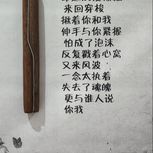 来回穿梭
揪着你和我
伸手与你紧握
怕成了泡沫
反复戳着心窝
又来风波
一念太执着
失去了魂魄
更与谁人说
你我